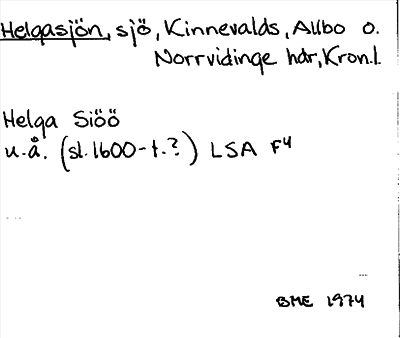 Helgasjön, sjö, Kinnevalds, Allbo o.
Norrvidinge hdr, Kron.l.
Helga Siöö
u.å. (sl. 1600-t.?) LSA F4
BME 1974